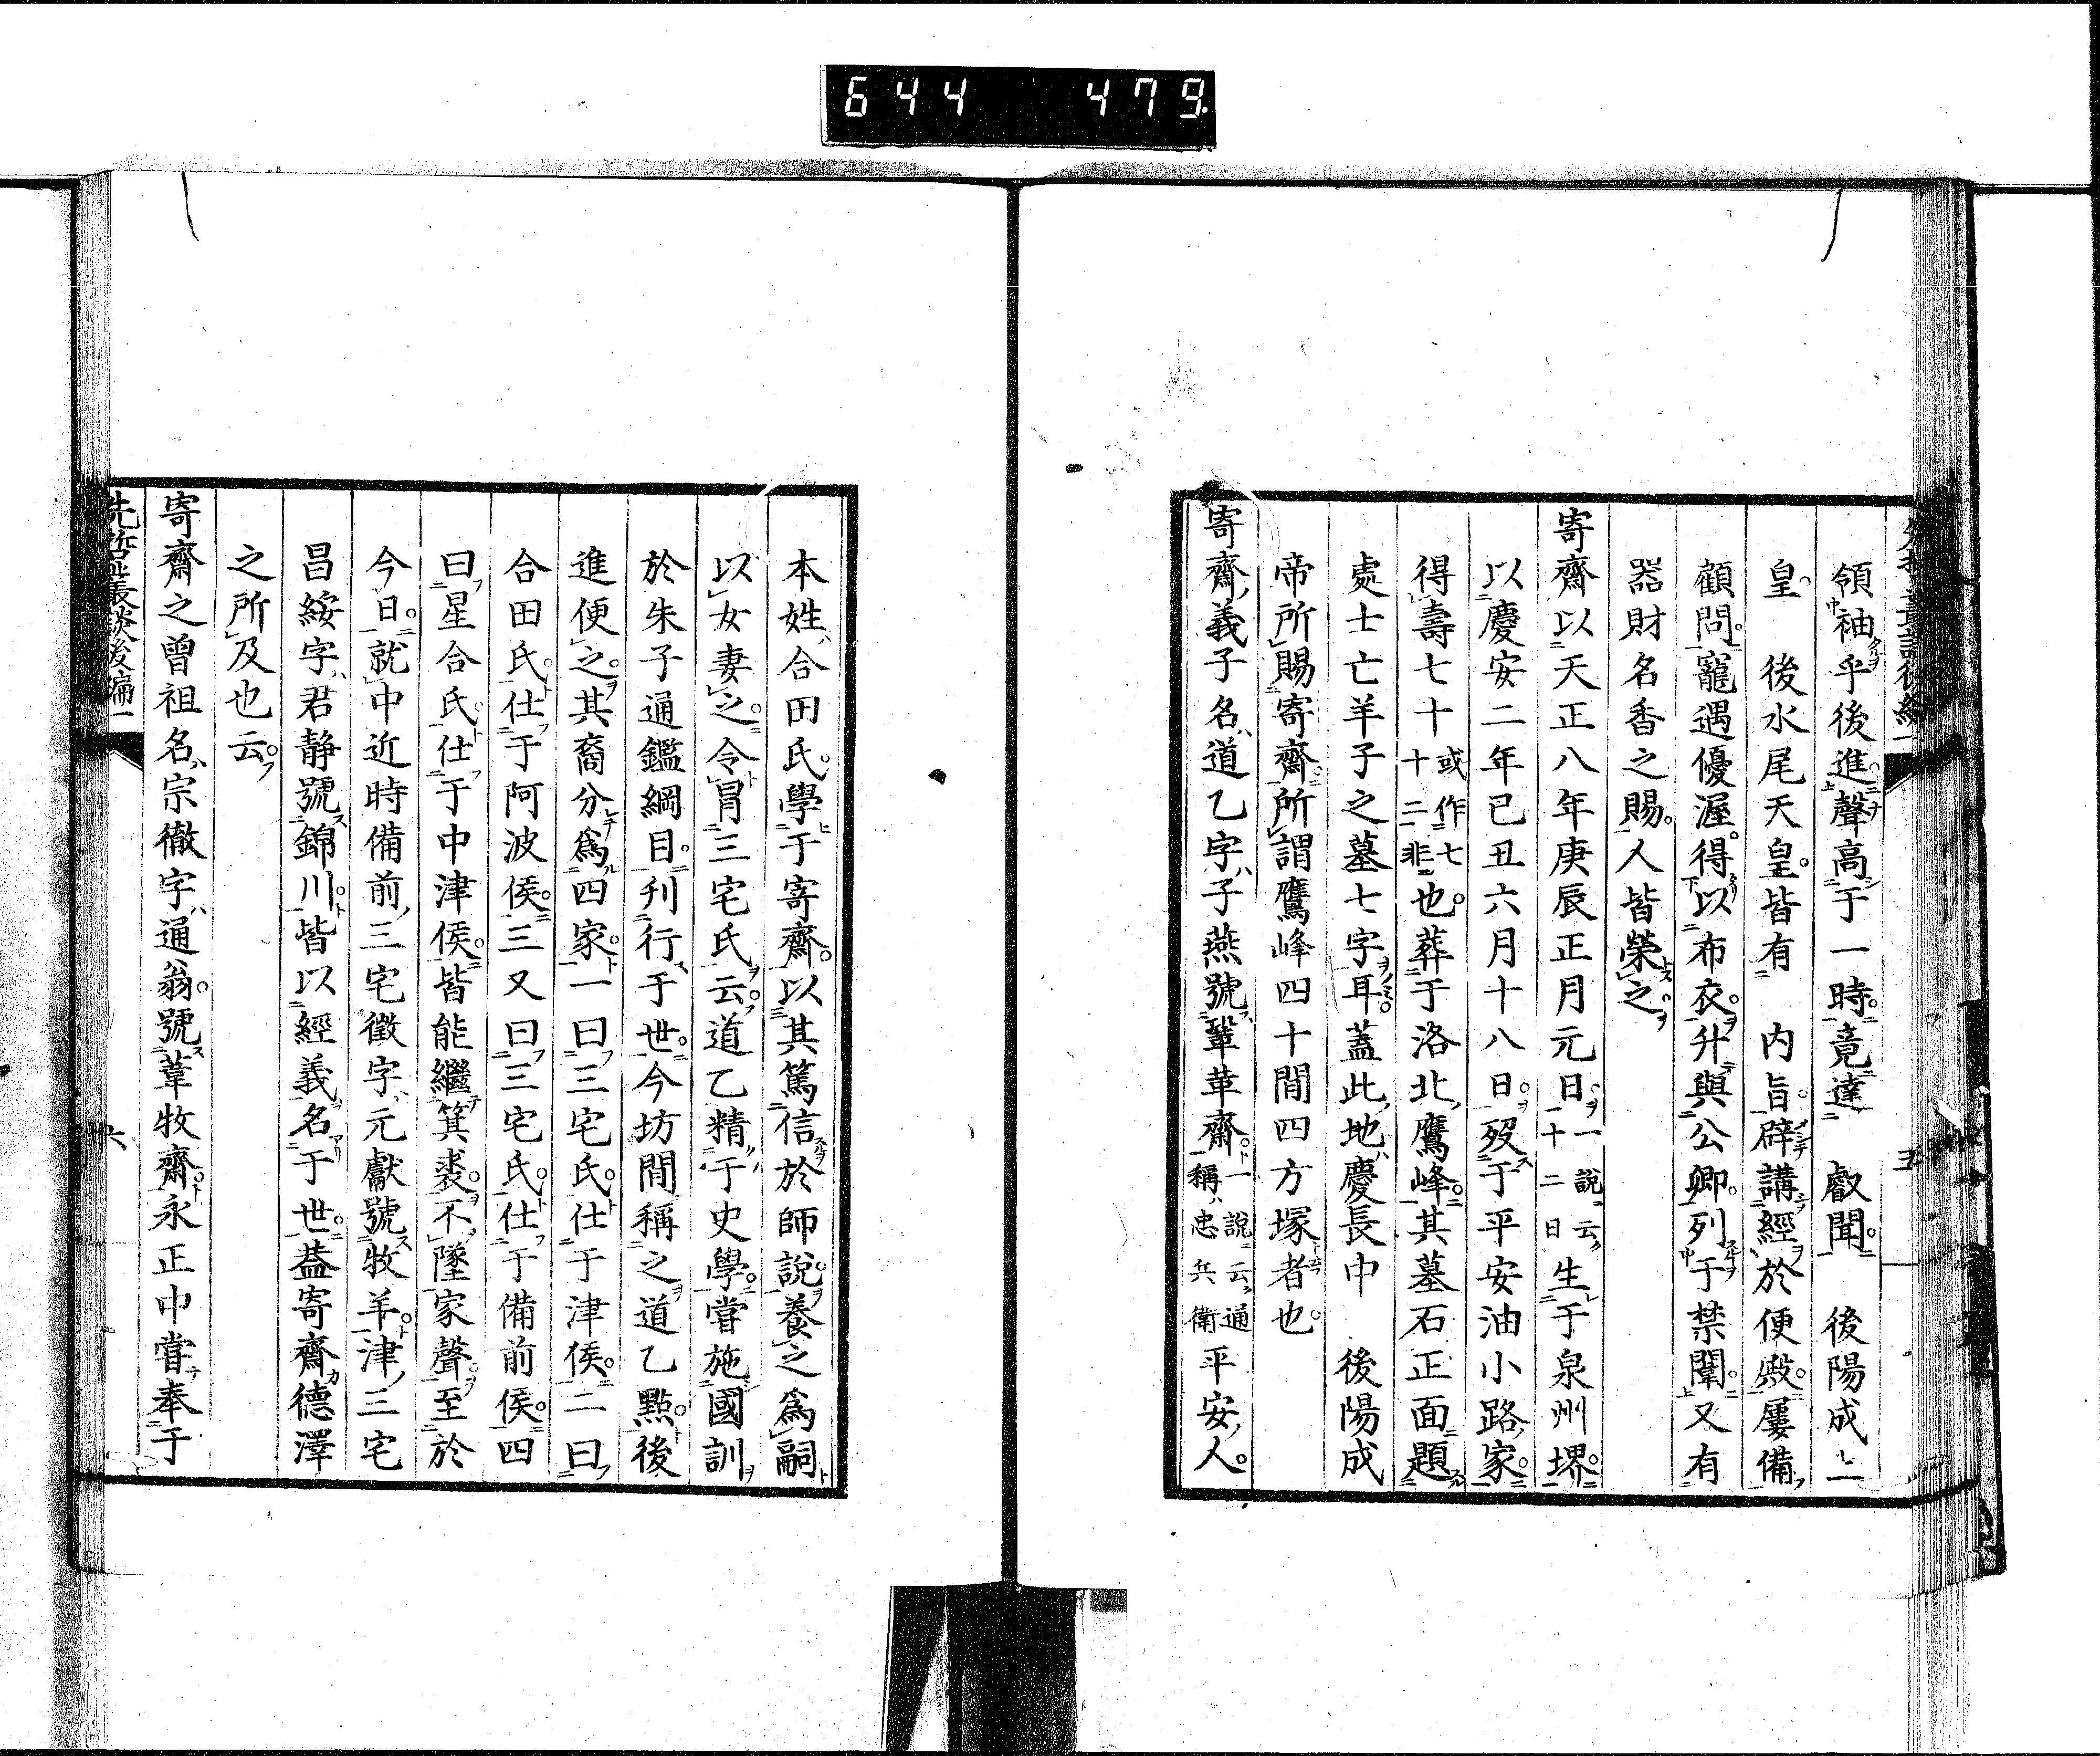 644 479
領袖乎後進聲高于一時竟達 叡聞 後陽成上
皇 後水尾天皇皆有 内旨辟講經於便殿屢備
顧問寵遇優渥得以布衣升與公卿列于禁闈又有
器財名香之賜人皆榮之
寄齋以天正八年庚辰正月元日一說云一十二日生于泉州堺
以慶安二年己丑六月十八日歿于平安油小路家
得壽七十或作七十二非也葬于洛北鷹峰其墓石正面題
處士亡羊子之墓七字耳蓋此地慶長中 後陽成
帝所賜寄齋所謂鷹峰四十間四方塚者也
寄齋義子名道乙字子燕號鞏革齋一說云通稱忠兵衛平安人
本姓合田氏學于寄齋以其篤信於師說養之爲嗣
以女妻之令冐三宅氏云道乙精于史學嘗施國訓
於朱子通鑑綱目刋行于世今坊間稱之道乙點後
進便之其裔分爲四家一曰三宅氏仕于津侯二曰
合田氏仕于阿波侯三又曰三宅氏仕于備前侯四
曰星合氏仕于中津侯皆能繼箕裘不墜家聲至於
今日就中近時備前三宅徵字元獻號牧羊津三宅
昌綏字君靜號錦川皆以經義名于世蓋寄齋德澤
之所及也云
寄齋之曾祖名宗徹字通翁號葦牧齋永正中嘗奉于
先哲叢談後編一
六